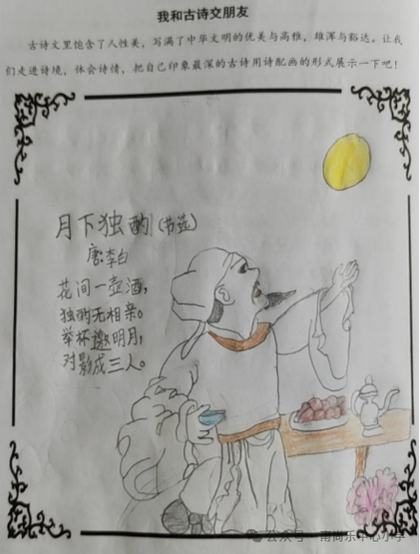 我和古诗交朋友
古诗文里饱含了人性美，写满了中华文明的优美与高雅，雄浑与豁达。让我
们走进诗境，体会诗情，把自己印象最深的古诗用诗配画的形式展示一下吧！
月下独酌(节选)
唐:李白
花间一壶酒，
独酌无相亲。
举杯邀明月，
对影成三人。
公众号·南尚乐中心小学